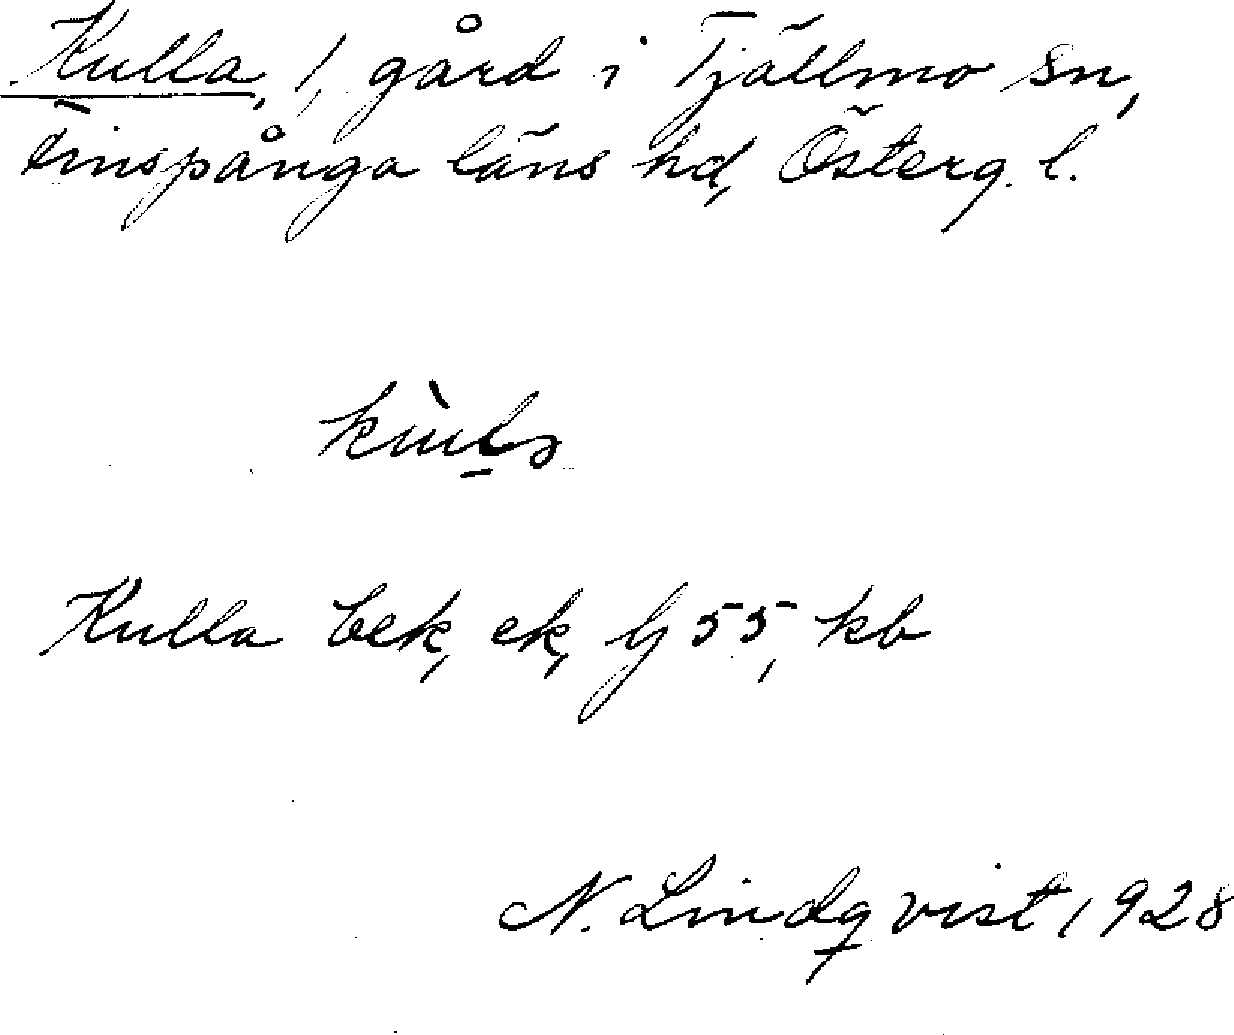 Kulla, 1, gård i Tjällmo sn,
Finspånga läns hd, Österg. l.
Kulla bek, ek, Gj 55, kb
N. Lindqvist, 1928